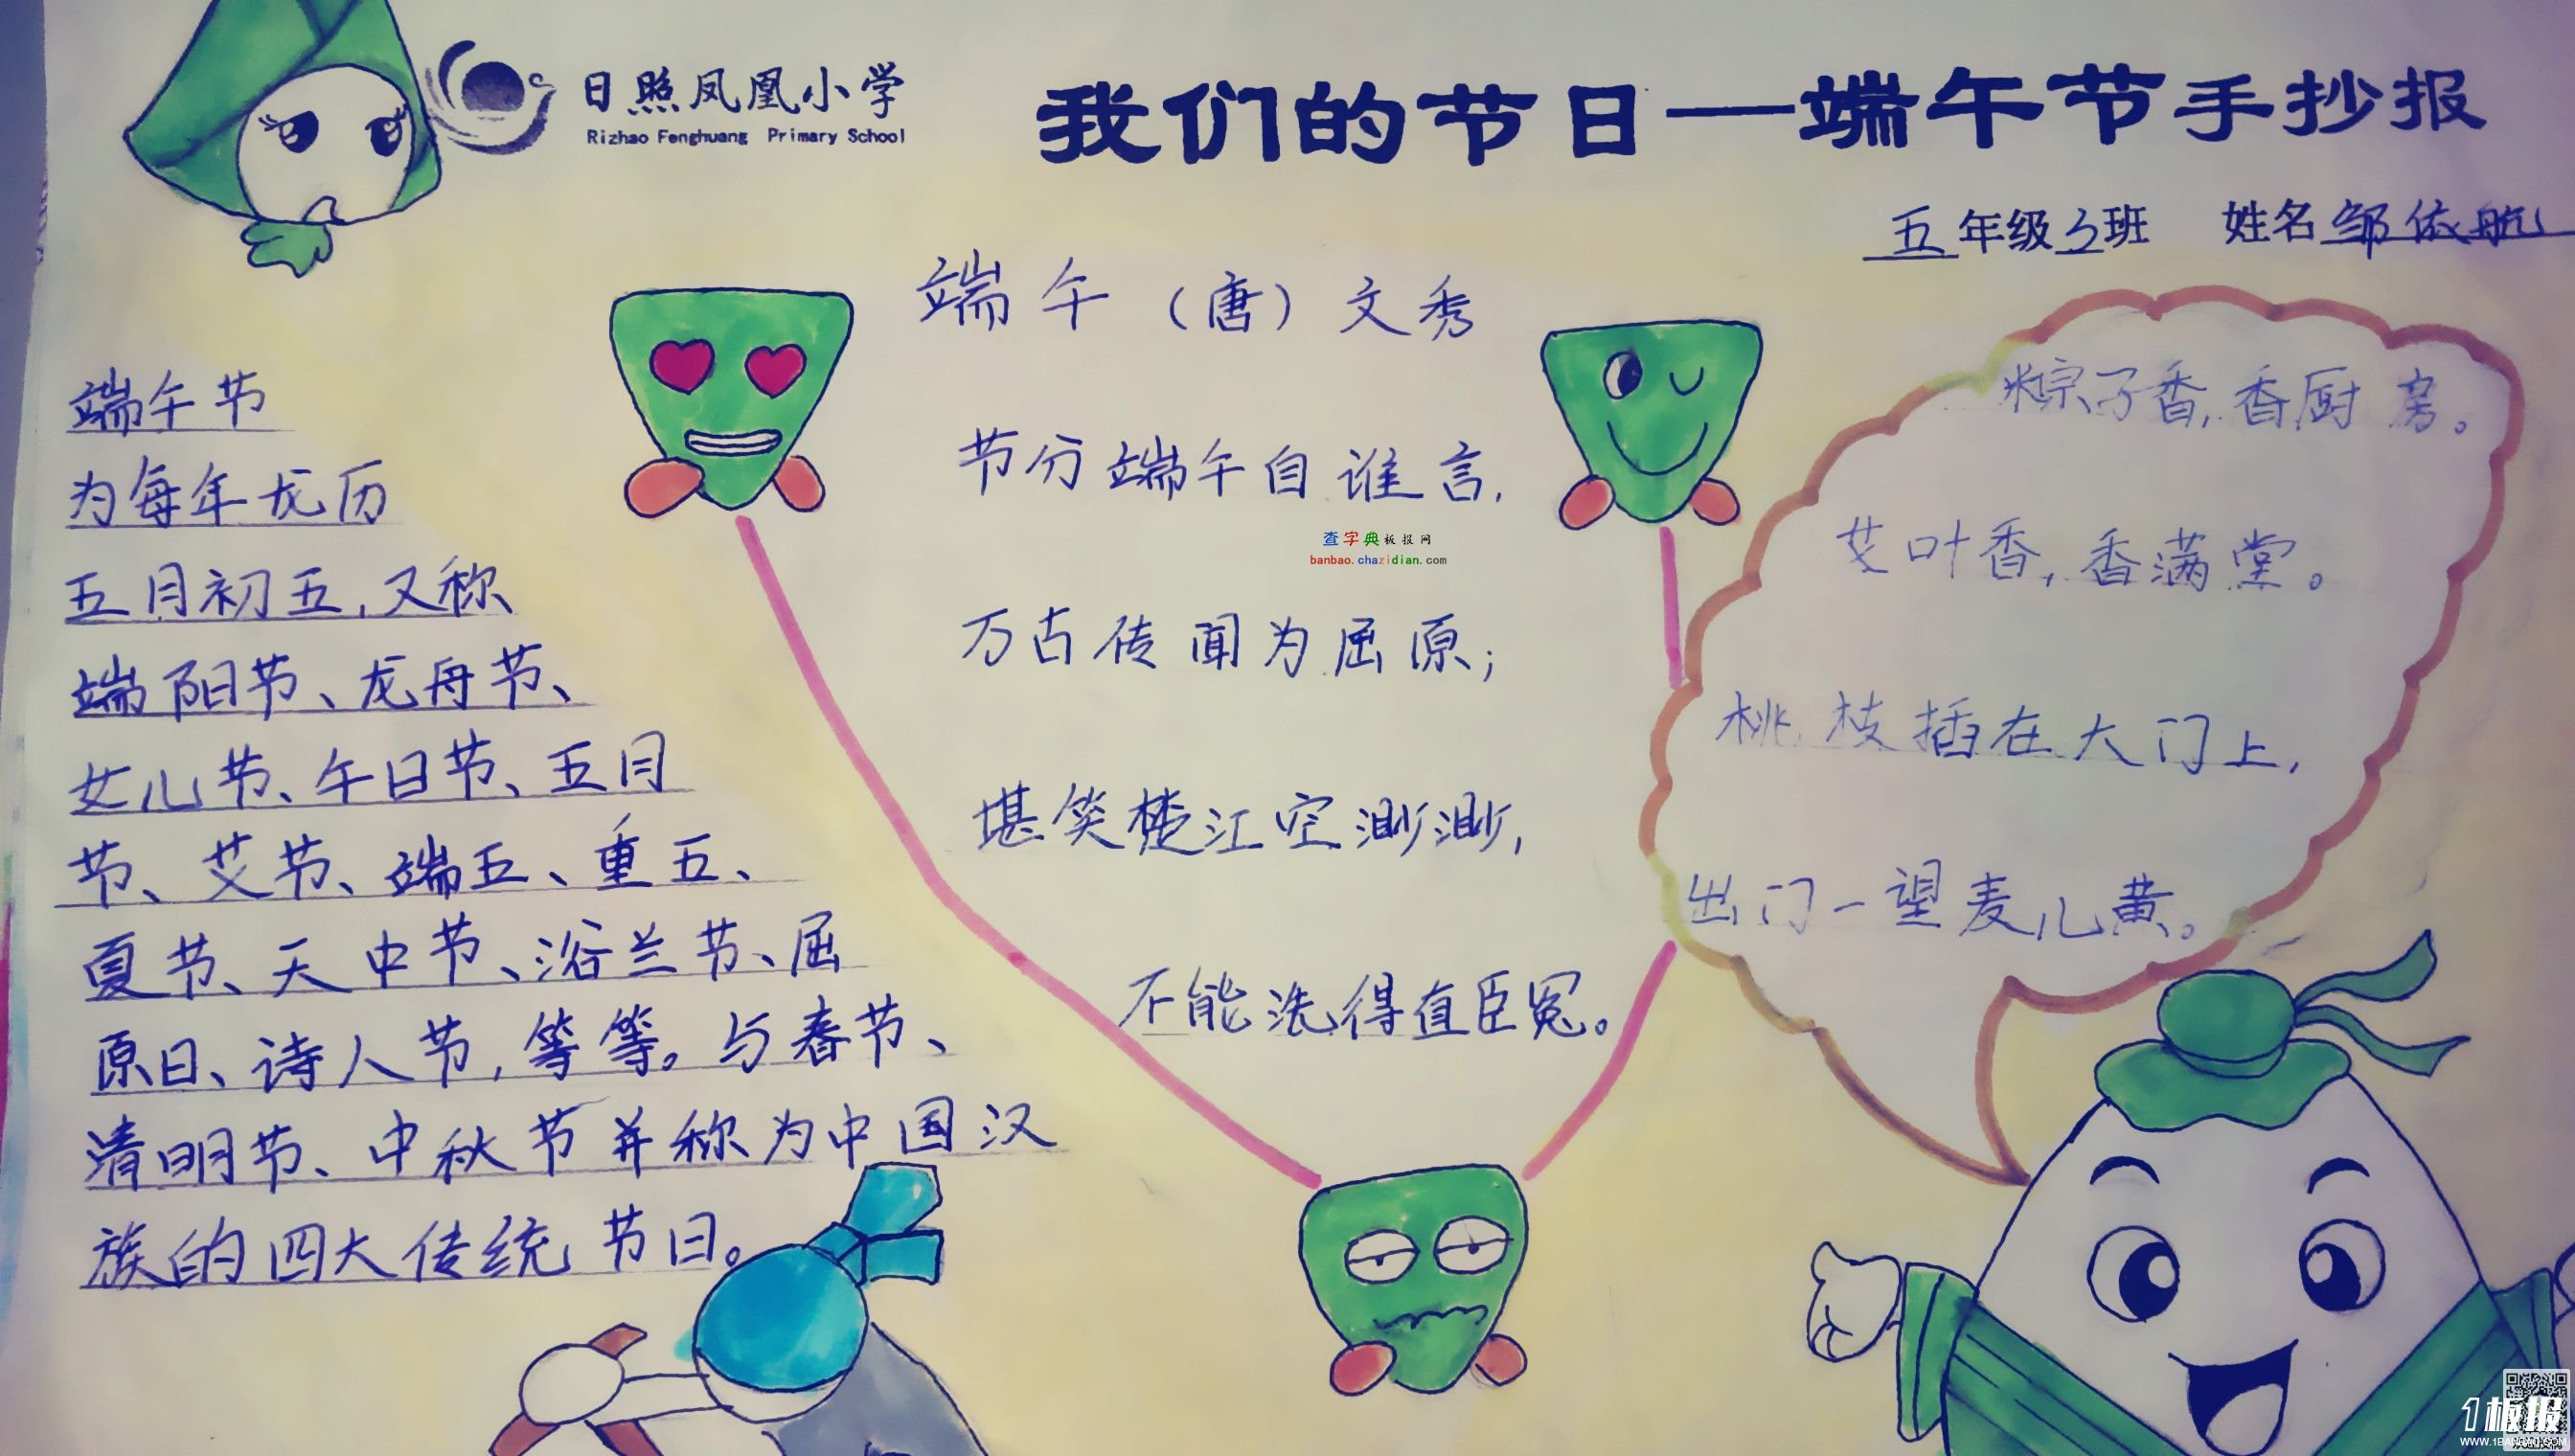 日照凤凰小学
Rizhao Fenghuang Primary School
我们的节日—端午节手抄报
五年级3班 姓名邹依航
端午节
为每年龙历
五月初五,又称
端阳节、龙舟节、
女儿节、午日节、五月
节、艾节、端五、重五、
夏节、天中节、浴兰节、屈
原日、诗人节,等等。与春节、
清明节、中秋节并称为中国汉
族的四大传统节日。
端午(唐)文秀
节分端午自谁言,
万古传闻为屈原;
堪笑楚江空渺渺,
不能洗得直臣冤。
查字典板报网
banbao.chazidian.com
粽子香,香厨房。
艾叶香,香满堂。
桃枝插在大门上,
出门一望麦儿黄。
1板报
WWW.1BANBAO.COM